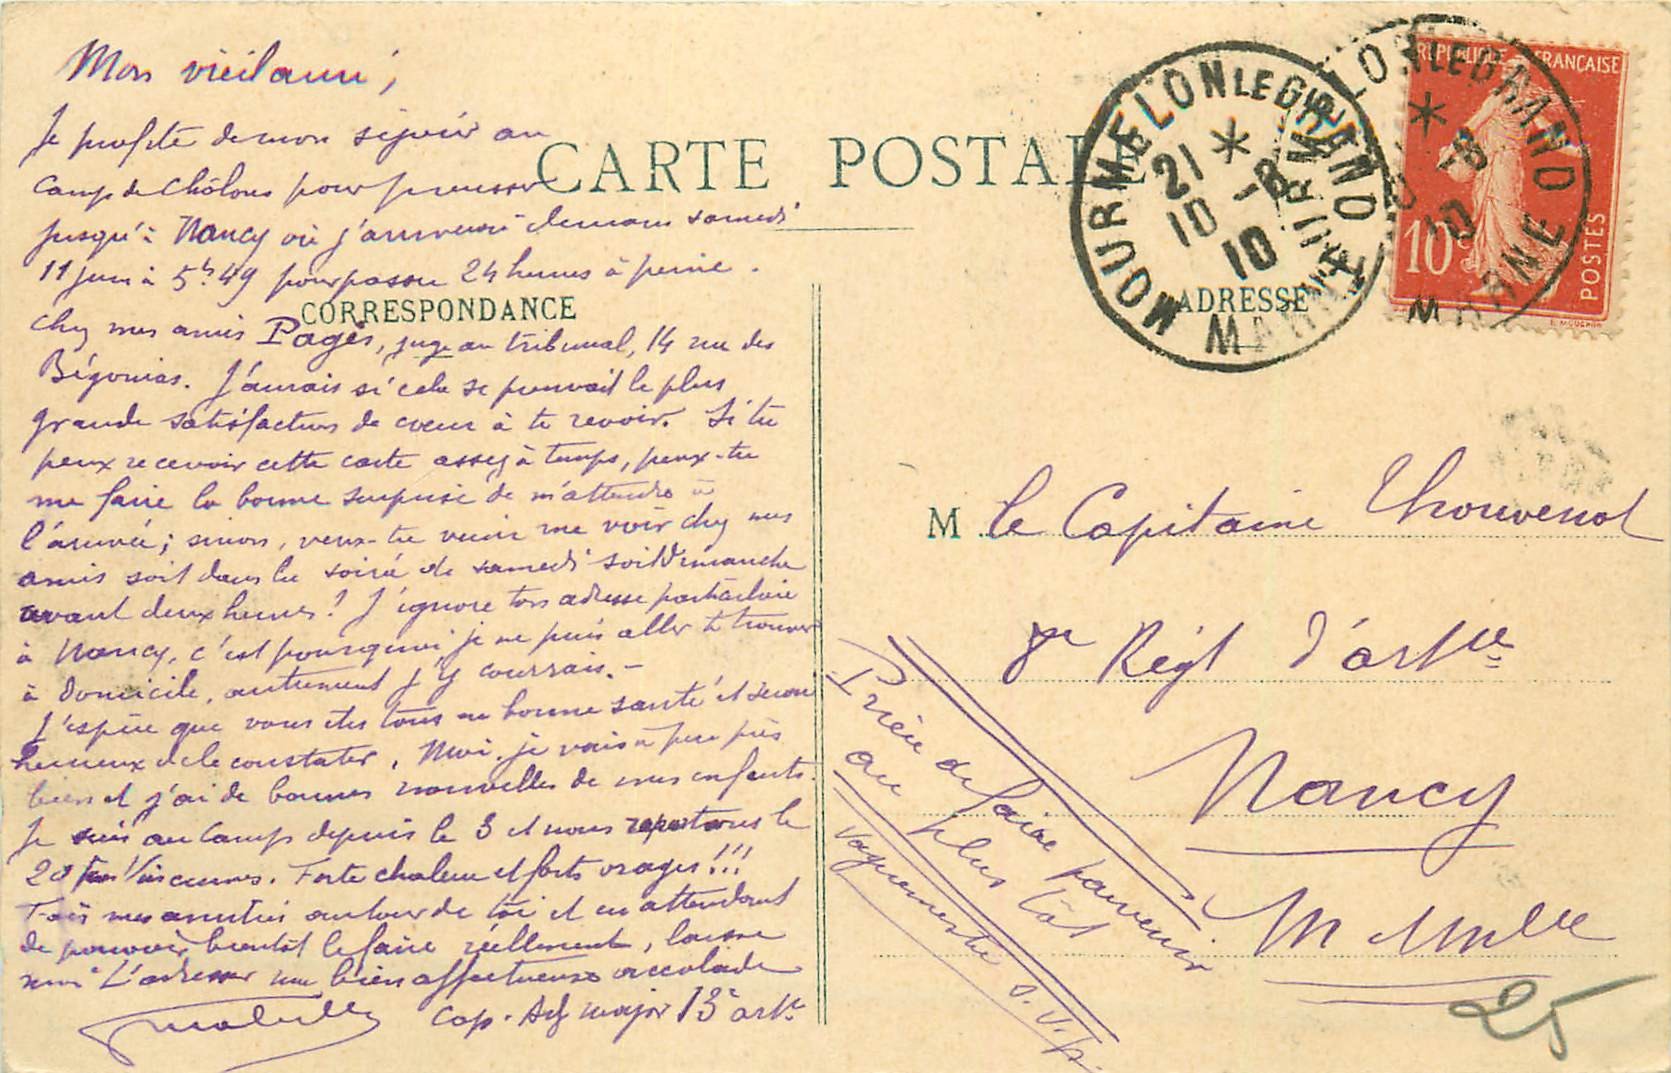 Mon vieil ami,
Je profite de mon séjour au
camp de Châlons pour pousser
jusqu'à Nancy où j'arriverai demain samedi
11 juin à 5h49 pour passer 24 heures à peine.
chez mes amis Pagès, juge au tribunal, 14 rue des
Bégonias. J'aurais si cela se pouvait la plus
grande satisfaction de coeur à te revoir. Si tu
peux recevoir cette carte assez à temps, peux-tu
me faire la bonne surprise de m'attendre à
l'arrivée; sinon, veux-tu venir me voir chez mes
amis soit dans la soirée de samedi soit Dimanche
avant deux heures? J'ignore ton adresse particulière
à Nancy, c'est pourquoi je ne puis aller te trouver
à domicile, autrement j'y courrais.-
J'espère que vous êtes tous en bonne santé et serai
heureux de le constater. Moi, je vais à peu près
bien et j'ai de bonnes nouvelles de mes enfants.
Je suis au camp depuis le 3 et nous repartons le
20 pour Vincennes. Forte chaleur et forts orages!!!
mes amitiés autour de toi et en attendant
de pouvoir bientôt le faire réellement, laisse
moi t'adresser une bien affectueuse accolade
Cap. Adj major 13e artie
CARTE POSTALE
CORRESPONDANCE
ADRESSE
MOURMELON LE GRAND
21 *
10 -6
10
MARNE
MOURMELON LE GRAND
*
-6
10
MARNE
REPUBLIQUE FRANÇAISE
10c
POSTES
E. MOUCHON
M le Capitaine Thouvenot
8e Régt d'artie
Nancy
M et Mlle
Prière de faire parvenir
au plus tôt
Vaguemestre s.v.p.
25